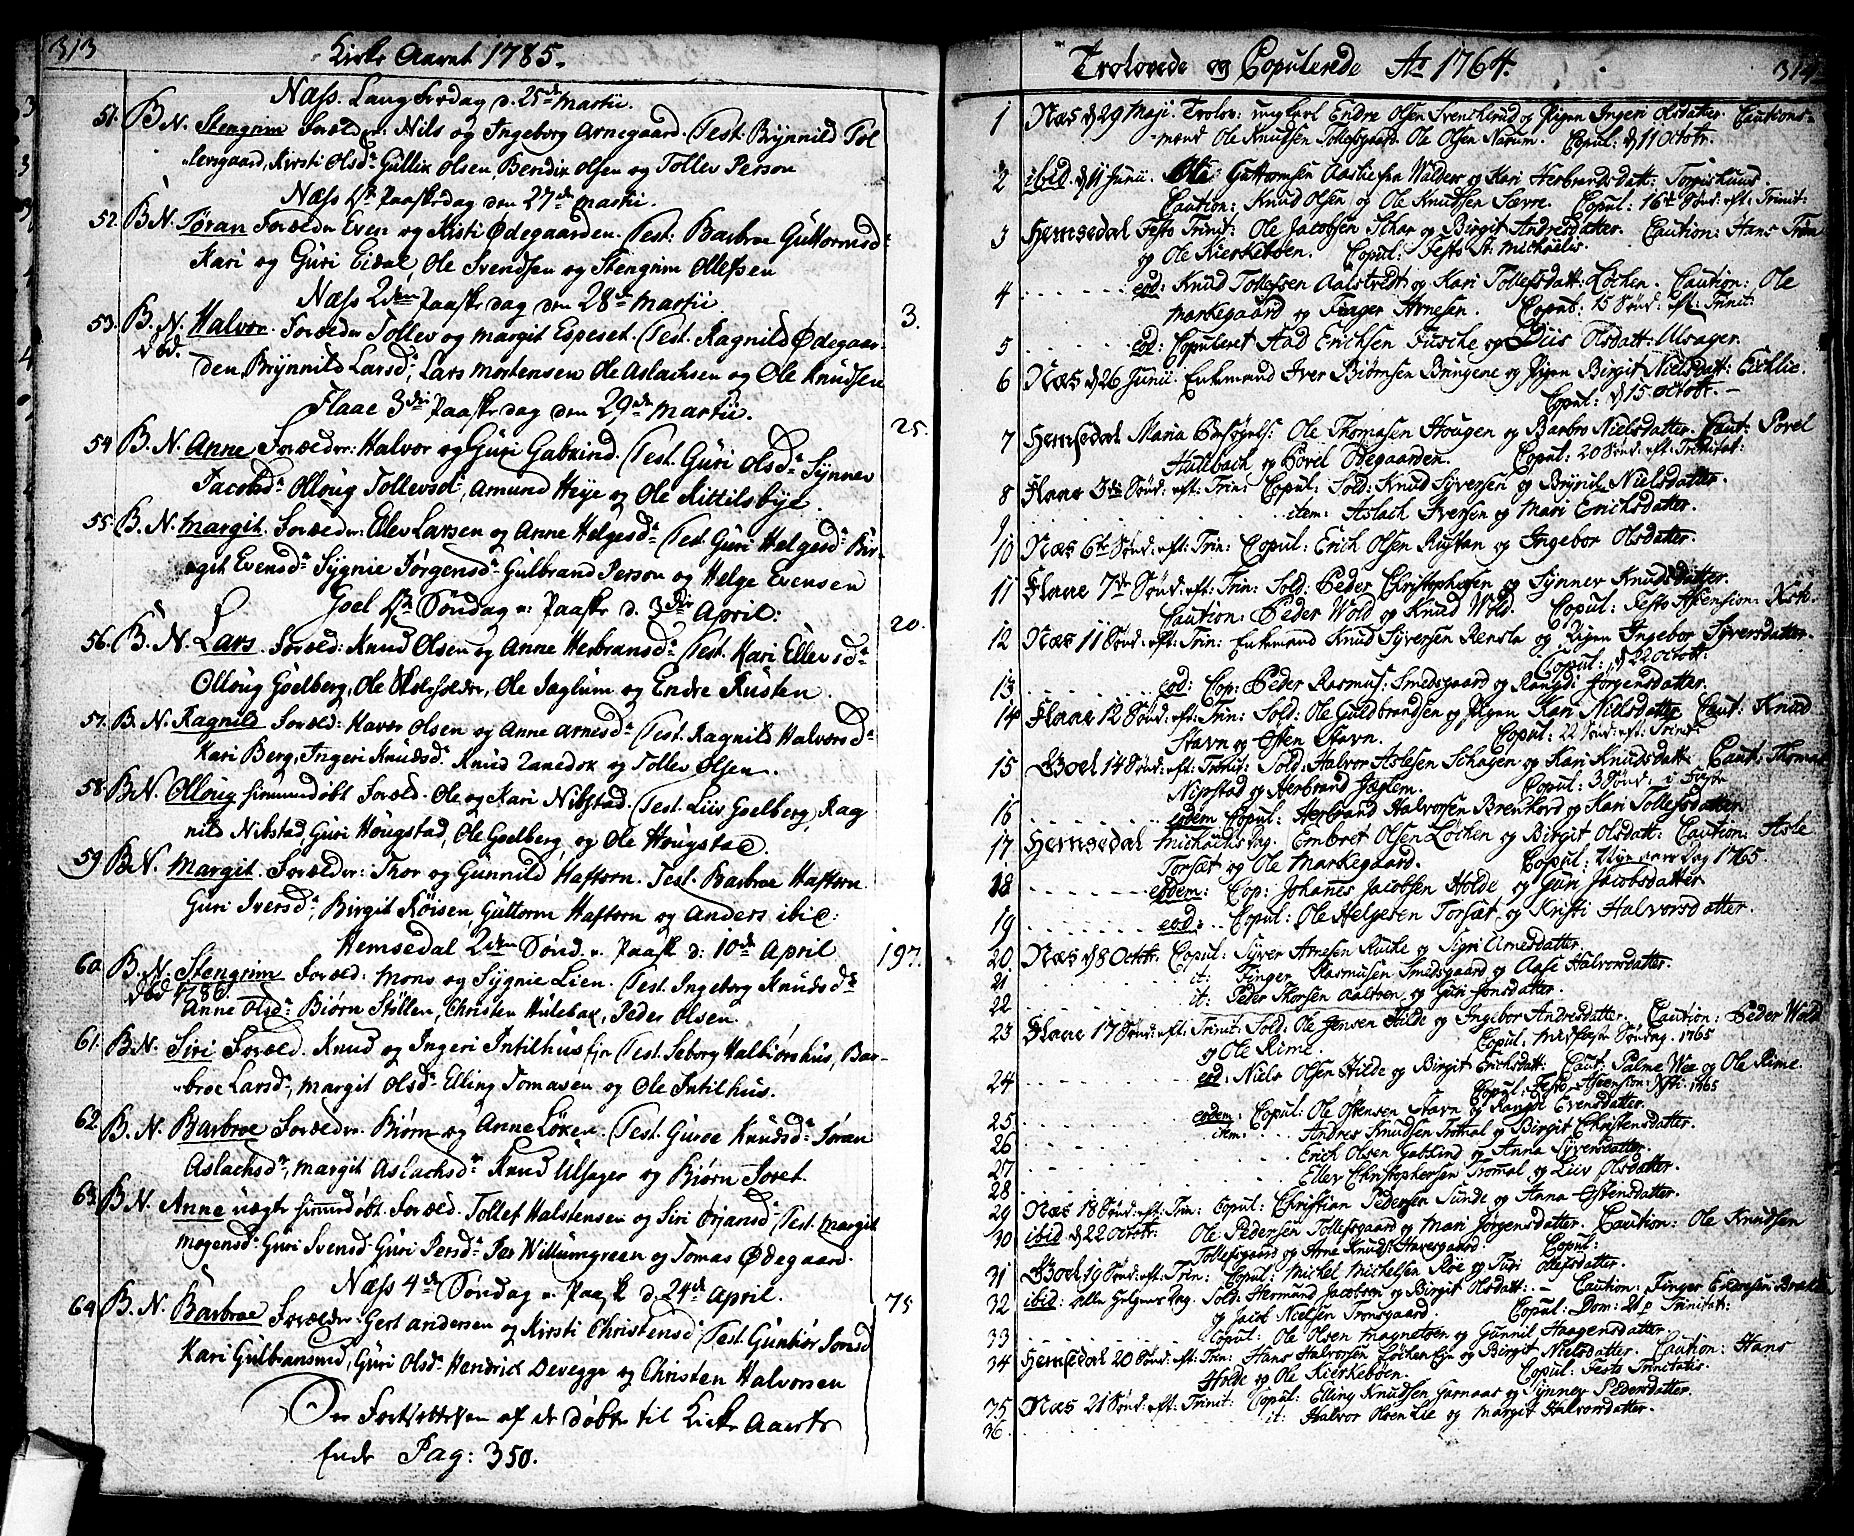 313
Kirke Aaret 1785.
Næss. Langfredag d. 25de Martii.
51. B. N. Stengrim Forælder: Nils og Ingeborg Arnegaard. Test. Brynnild Tol
levsgaard, Kirsti Olsd: Gullix Olsen, Bendix Olsen og Tollev Person
Næss 1ste Paaskedag den 27de Martii.
52. B N. Tøran Forælder Even og Kisti Ødegaarden. Test: Barbroe Guttormsd:
Kari og Guri Eidal, Ole Svendsen og Stengrim Ollefsen
Næss 2den Paaske dag den 28de Martii
53. B. N. Halvor. Forælder Tollev og Margit Espeset. Test. Ragnild Ødegaar- 3.
død. den Brynnild Larsd:, Lars Mortensen Ole Aslachsen og Ole Knudsen
Flaae 3die Paaske dag den 29de Martii.
54 B. N. Anne Forælder: Halvor og Guri Gabrind. Test. Guri Olsd: Synnev 25.
Jacobsd: Olloug Tollevsd, Amund Heye og Ole Kittilsbye.
55. B. N. Margit. Forælder: Ellev Larsen og Anne Helgesd: Test. Guri Helgesd: Bir-
git Evensd: Sygnie Jørgensd: Gulbrand Person og Helge Evensen
Goel 1ste Søndag e: Paaske d. 3die April: 20.
56. B. N. Lars. Foræld: Knud Olsen og Anne Herbransd: Test. Kari Ellevsd:
Olloug Goelberg, Ole Ole Jaglum og Endre Rusten.
57. B. N. Ragnild Foræld: Haver Olsen og Anne Arnesd: Test. Ragnild Halvorsd:
Kari Berg, Ingeri Knudsd. Knud og Tollev Olsen.
58. B N. Olloug hiemmedøbt Foræld. Ole og Kari Nibstad. Test. Liv Goelberg, Rag
nild Nibstad, Guri Hougstad, Ole Goelberg og Ole Hougstad.
59 B. N. Margit. Forælder: Thor og Gunnild Haftorn. Test. Barbroe Haftorn
Guri Iversd:, Birgit Røisen, Guttorm Haftorn og Anders ibid:
Hemsedal 2den Sønd. e. Paask d: 10de April 197.
60. B. N. Stengrim Foræld: Mons og Sygnie Lien. Test. Ingeborg Knudsd:
død 1786. Anne Olsd: Biørn Støllen, Christen Hulebak, Peder Olsen.
61. B N. Siri Foræld. Knud og Ingeri Intilhus Test. Seborg Halbiørshus, Bar-
broe Larsd:, Margit Olsd: Elling Tomasen og Ole Intilhus.
62. B. N. Barbroe Forælder. Biørn og Anne Løken. Test. Guroe Knudsd: Tøran
Aslachsd:, Margit Aslachsd: Knud Ulsager og Biørn Toret.
63. B N. Anne uægte hiemmedøbt. Foræld. Tollef Halstensen og Siri Ørjansd: Test. Margit
Mogensd: Guri Svensd Guri Persd: Per Willumgreen og Tomas Ødegaard.
Næss 4de Søndag e. Paask d. 24de April. 75
64. B. N. Barbroe Forælder: Gert Andersen og Kirsti Christensd: Test. Guntior Tomsd
Kari Gulbransmd, Guri Olsd: Hendrick Devegge og Christen Halvorsen
Den Fortsættelsen af de døbte til Kirke Aarets
Ende Pag: 350.
Trolovede og Copulerede Ao 1764.
314
1 Næs d 29 Maji. Trolov: ungkarl Endre Olsen Svenkerud og Pigen Ingeri Olsdatter. Cautions-
mænd Ole Knudsen Tollefsgaard. Ole Olsen Narum. Copul: d 11 Octobr.
2 ibid. d 11 Junii. Ole Guttormsen Aasliesen Walders og Kari Herbrandsdatt: Torgishuus.
Caution: Knud Olsen og Ole Knudsen Sævre. Copul: 16de Sønd: eft: Trinit:
3 Hemsedal Festo Trinit: Ole Jacobsen Schar og Birgit Andresdatter. Caution: Hans Trøn
og Ole Kierkebøen. Copul: Festo St. Michaelis.
4 eod: Knud Tollefsen Aalstvedt og Kari Tollefsdatt: Løchen. Caution: Ole
Markegaard og Finger Arnesen. Copul: 15 Sønd: eft: Trinit:
5 eod: Copuleret Aad Erichsen Tuschе og Liis Olsdatt: Ulsager
6 Næs d 26 Junii. Enkemand Iver Biørnsen Bringene og Pigen Birgit Nielsdatt: Eichlie.
Copul: d 15 Octobr. -
7 Hemsedal Maria Besøgels: Ole Thomasen Hougen og Barbro Nielsdatter. Caut: Povel
Hullebach og Povel Ødegaarden. Copul: 20 Sønd: eft: Trinitat:
8 Flaae 3die Sønd: eft: Trin: Copul: Sold: Knud Syversen og Brynil Nielsdatter.
9 item: Aslach Iversen og Mari Erichsdatter.
10 Næs 6te Sønd: eft: Trin: Copul: Erich Olsen Rustan og Ingebor Olsdatter.
11 Flaae 7de Sønd: eft: Trin: Sold: Peder Christophersen og Synnev Knudsdatter.
Caution: Peder Wold og Knud Wold. Copul: Festo Ascension: Xsti.
12 Næs 11 Sønd: eft: Trin: Enkemand Knud Syversen Rensla og Pigen Ingebor Syversdatter.
Copul: d 22 Octobr:
13 eod: Cop: Peder Rasmus: Smedsgaard og Rangdi Jørgensdatter.
14 Flaae 12 Sønd: eft: Trin: Sold: Ole Guldbrandsen og Pigen Kari Nielsdatter Caut: Knud
Stavn og Østen Stavn. Copul: 22 Sønd: eft: Trinit:
15 Goel 14 Sønd: eft: Trinit: Sold: Halvor Aslesen Schagen og Kari Knudsdatt: Caut: Thomas
Nipstad og Herbrand Jæglem. Copul: 3 Sønd: i Faste
16 eodem Copul: Herbrand Halvorsen Brenhovd og Kari Tollefsdatter.
17 Hemsedal Michaelis Dag. Embret Olsen Løchen og Birgit Olsdatt: Caution: Asle
Torset og Ole Markegaard. Copul: Nye aars Dag 1765.
18 eodem: Cop: Johanes Jacobsen Holde og Guri Jacobsdatter
19 eod: Copul: Ole Helgesen Torset og Kristi Halvorsdatter.
20 Næs d 8 Octobr. Copul: Syver Arnesen Ruche og Sigri Arnesdatter.
21 it: Finger Rasmusen Smedsgaard og Aase Halvorsdatter.
22 it: Peder Thorsen Aaltoen og Guri Jonsdatter.
23 Flaae 17 Sønd: eft: Trinit: Sold: Ole Jensen Hilde og Ingebor Andresdatter. Caution: Peder Wold
og Ole Rime. Copul: Midfaste Søndag. 1765
24 eod: Niels Olsen Hilde og Birgit Erichsdatt: Caut: Palme Wee og Ole Rime.
Copul: Festo Ascension: Xsti: 1765
25 eodem: Copul: Ole Østensen Stavn og Rangdi Evensdatter.
26 item: Andres Knudsen Tromal og Birgit Christensdatter.
27 Erich Olsen Gabrind og Anna Syversdatter.
28 Ellev Christophersen Tromal og Liv Olsdatter.
29 Næs 18 Sønd: eft: Trin: Copul: Christian Pedersen Sunde og Anna Østensdatter.
30 ibid d 22 Octobr: Ole Pedersen Tollefsgaard og Mari Jørgensdatter. Caution: Ole Knudsen
Tollefsgaard og Arne Knuds: Haversgaard: Copul:
31 Goel 19 Sønd: eft: Trin: Copul: Michel Michelsen Roe og Turi Ollefsdatter.
32 ibid: alle Helgens Dag. Sold: Hermand Jacobsen og Birgit Olsdatt: - Caution: Finger Endresen
og Jacob Nielsen Tronsgaard Copul: Dom: 21 p Trinitat:
33 Copul: Ole Olsen Magnetoen og Gunnil Haagensdatter.
34 Hemsedal 20 Sønd: eft: Trin: Hans Halvorsen Løchen og Birgit Nielsdatter. Caution: Hans
Holde og Ole Kierkebøen. Copul: Festo Trinitatis.
35 Næs 21 Sønd: eft: Trinit: Copul: Elling Knudsen Garnaas og Synnev Pedersdatter.
36. it: Halvor Olsen Lie og Margit Halvorsdatter.